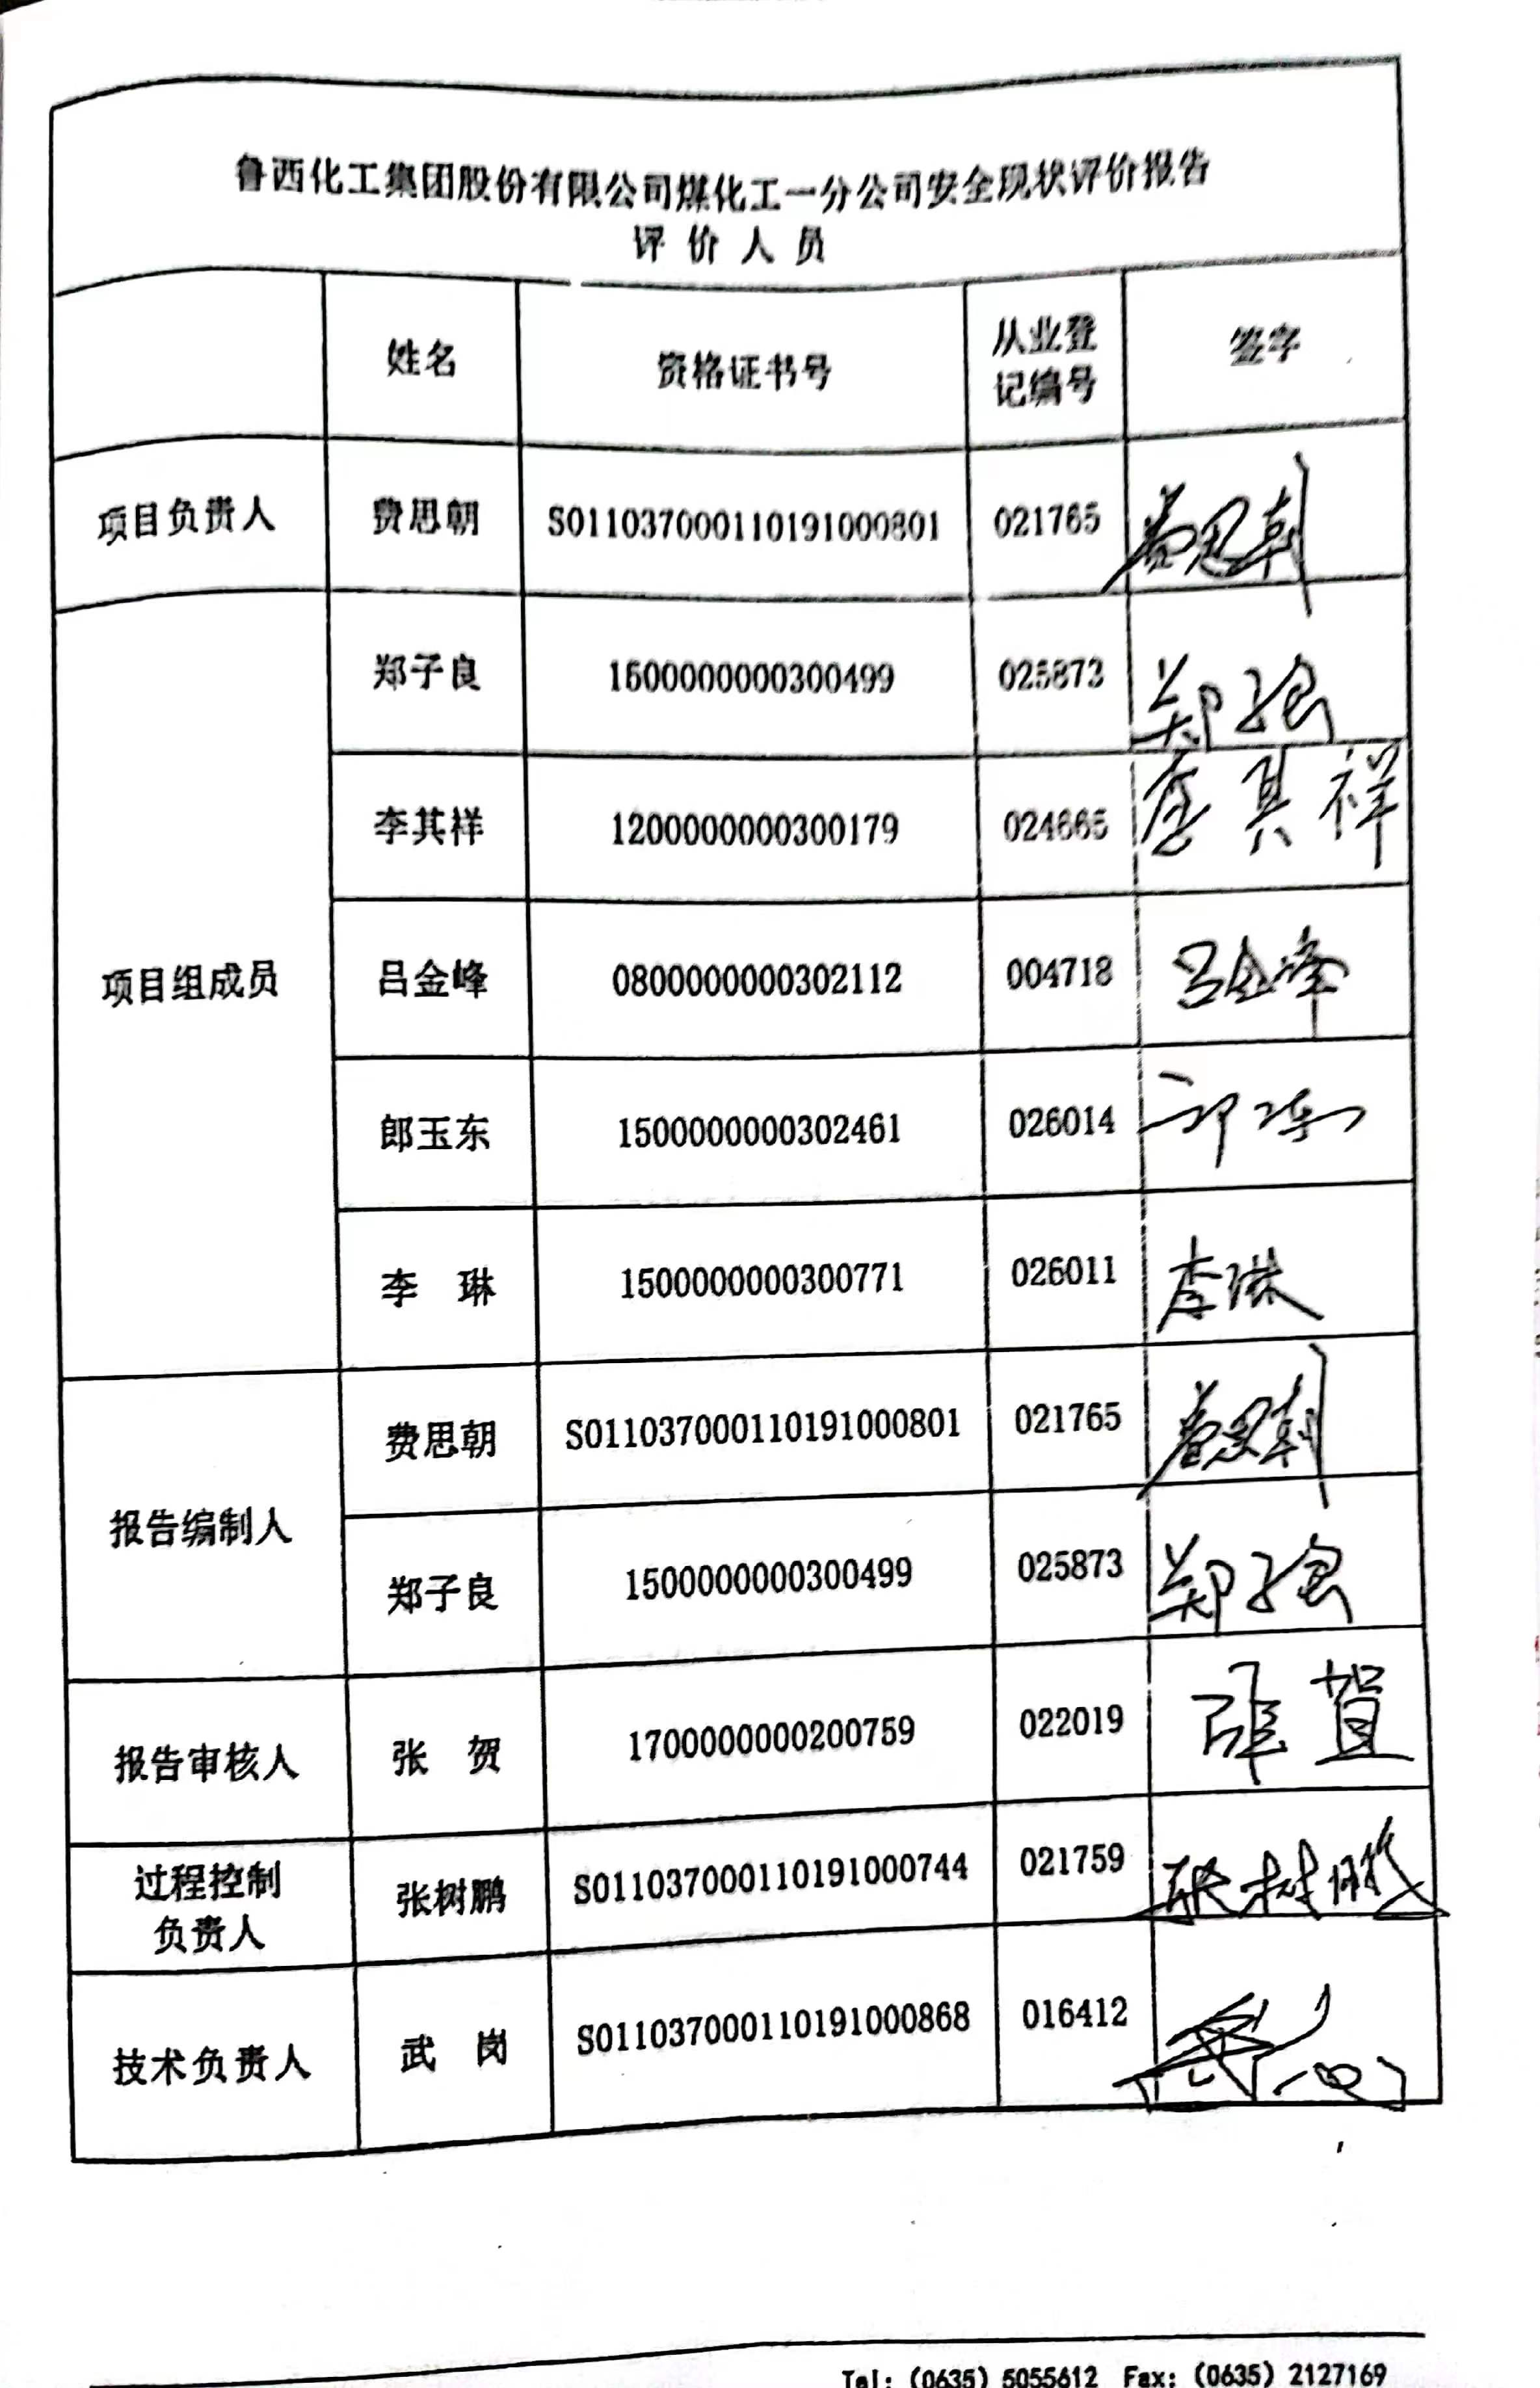 鲁西化工集团股份有限公司煤化工一分公司安全现状评价报告
评价人员
姓名 资格证书号 从业登记编号 签字
项目负责人 费思朝 S011037000110191000801 021765 费思朝
项目组成员 郑子良 1500000000300499 025873 郑子良
李其祥 1200000000300179 024665 李其祥
吕金峰 0800000000302112 004718 吕金峰
郎玉东 1500000000302461 026014
李 琳 1500000000300771 026011 李琳
报告编制人 费思朝 S011037000110191000801 021765 费思朝
郑子良 1500000000300499 025873 郑子良
报告审核人 张 贺 1700000000200759 022019 张贺
过程控制负责人 张树鹏 S011037000110191000744 021759 张树鹏
技术负责人 武 岗 S011037000110191000868 016412
Tel: (0635) 5055612 Fax: (0635) 2127169